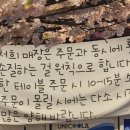 저희 매장은 주문과 동시에
손질하는 걸 원칙으로 합니다
한 테이블 주문 시 10~15분
주문이 몰릴 시에는 다소 시
많은 양해 바랍니다.